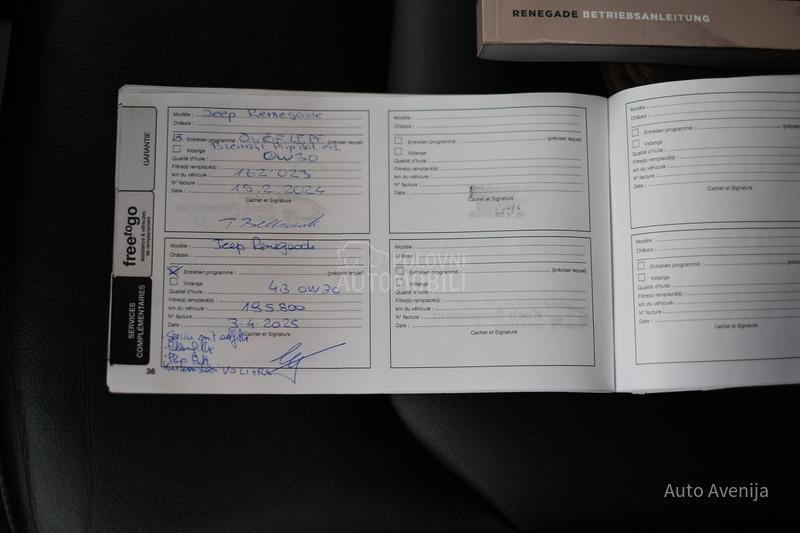 RENEGADE BETRIEBSANLEITUNG
GARANTIE
freetogo
assistance & véhicules
de remplacement
SERVICES
COMPLÉMENTAIRES
Modèle : Jeep Renegade
Châssis :
Entretien programmé : (préciser lequel)
Vidange
Qualité d'huile : 0W30
Filtre(s) remplacé(s) :
km du véhicule : 162'023
N° facture :
Date : 15.2.2024
Cachet et Signature
Modèle : Jeep Renegade
Châssis :
Entretien programmé : (préciser lequel)
Vidange
Qualité d'huile : 4.3 0W30
Filtre(s) remplacé(s) :
km du véhicule : 195800
N° facture :
Date : 3-4.2025
Cachet et Signature
36
Modèle :
Châssis :
Entretien programmé : (préciser lequel)
Vidange
Qualité d'huile :
Filtre(s) remplacé(s) :
km du véhicule :
N° facture :
Date :
Cachet et Signature
Modèle :
Châssis :
Entretien programmé : (préciser lequel)
Vidange
Qualité d'huile :
Filtre(s) remplacé(s) :
km du véhicule :
N° facture :
Date :
Cachet et Signature
Modèle :
Châssis :
Entretien programmé :
Vidange
Qualité d'huile :
Filtre(s) remplacé(s) :
km du véhicule :
N° facture :
Date :
Cachet et Signature
Modèle :
Châssis :
Entretien programmé :
Vidange
Qualité d'huile :
Filtre(s) remplacé(s) :
km du véhicule :
N° facture :
Date :
Cachet et Signature
POLOVNI
AUTOMOBILI
Auto Avenija